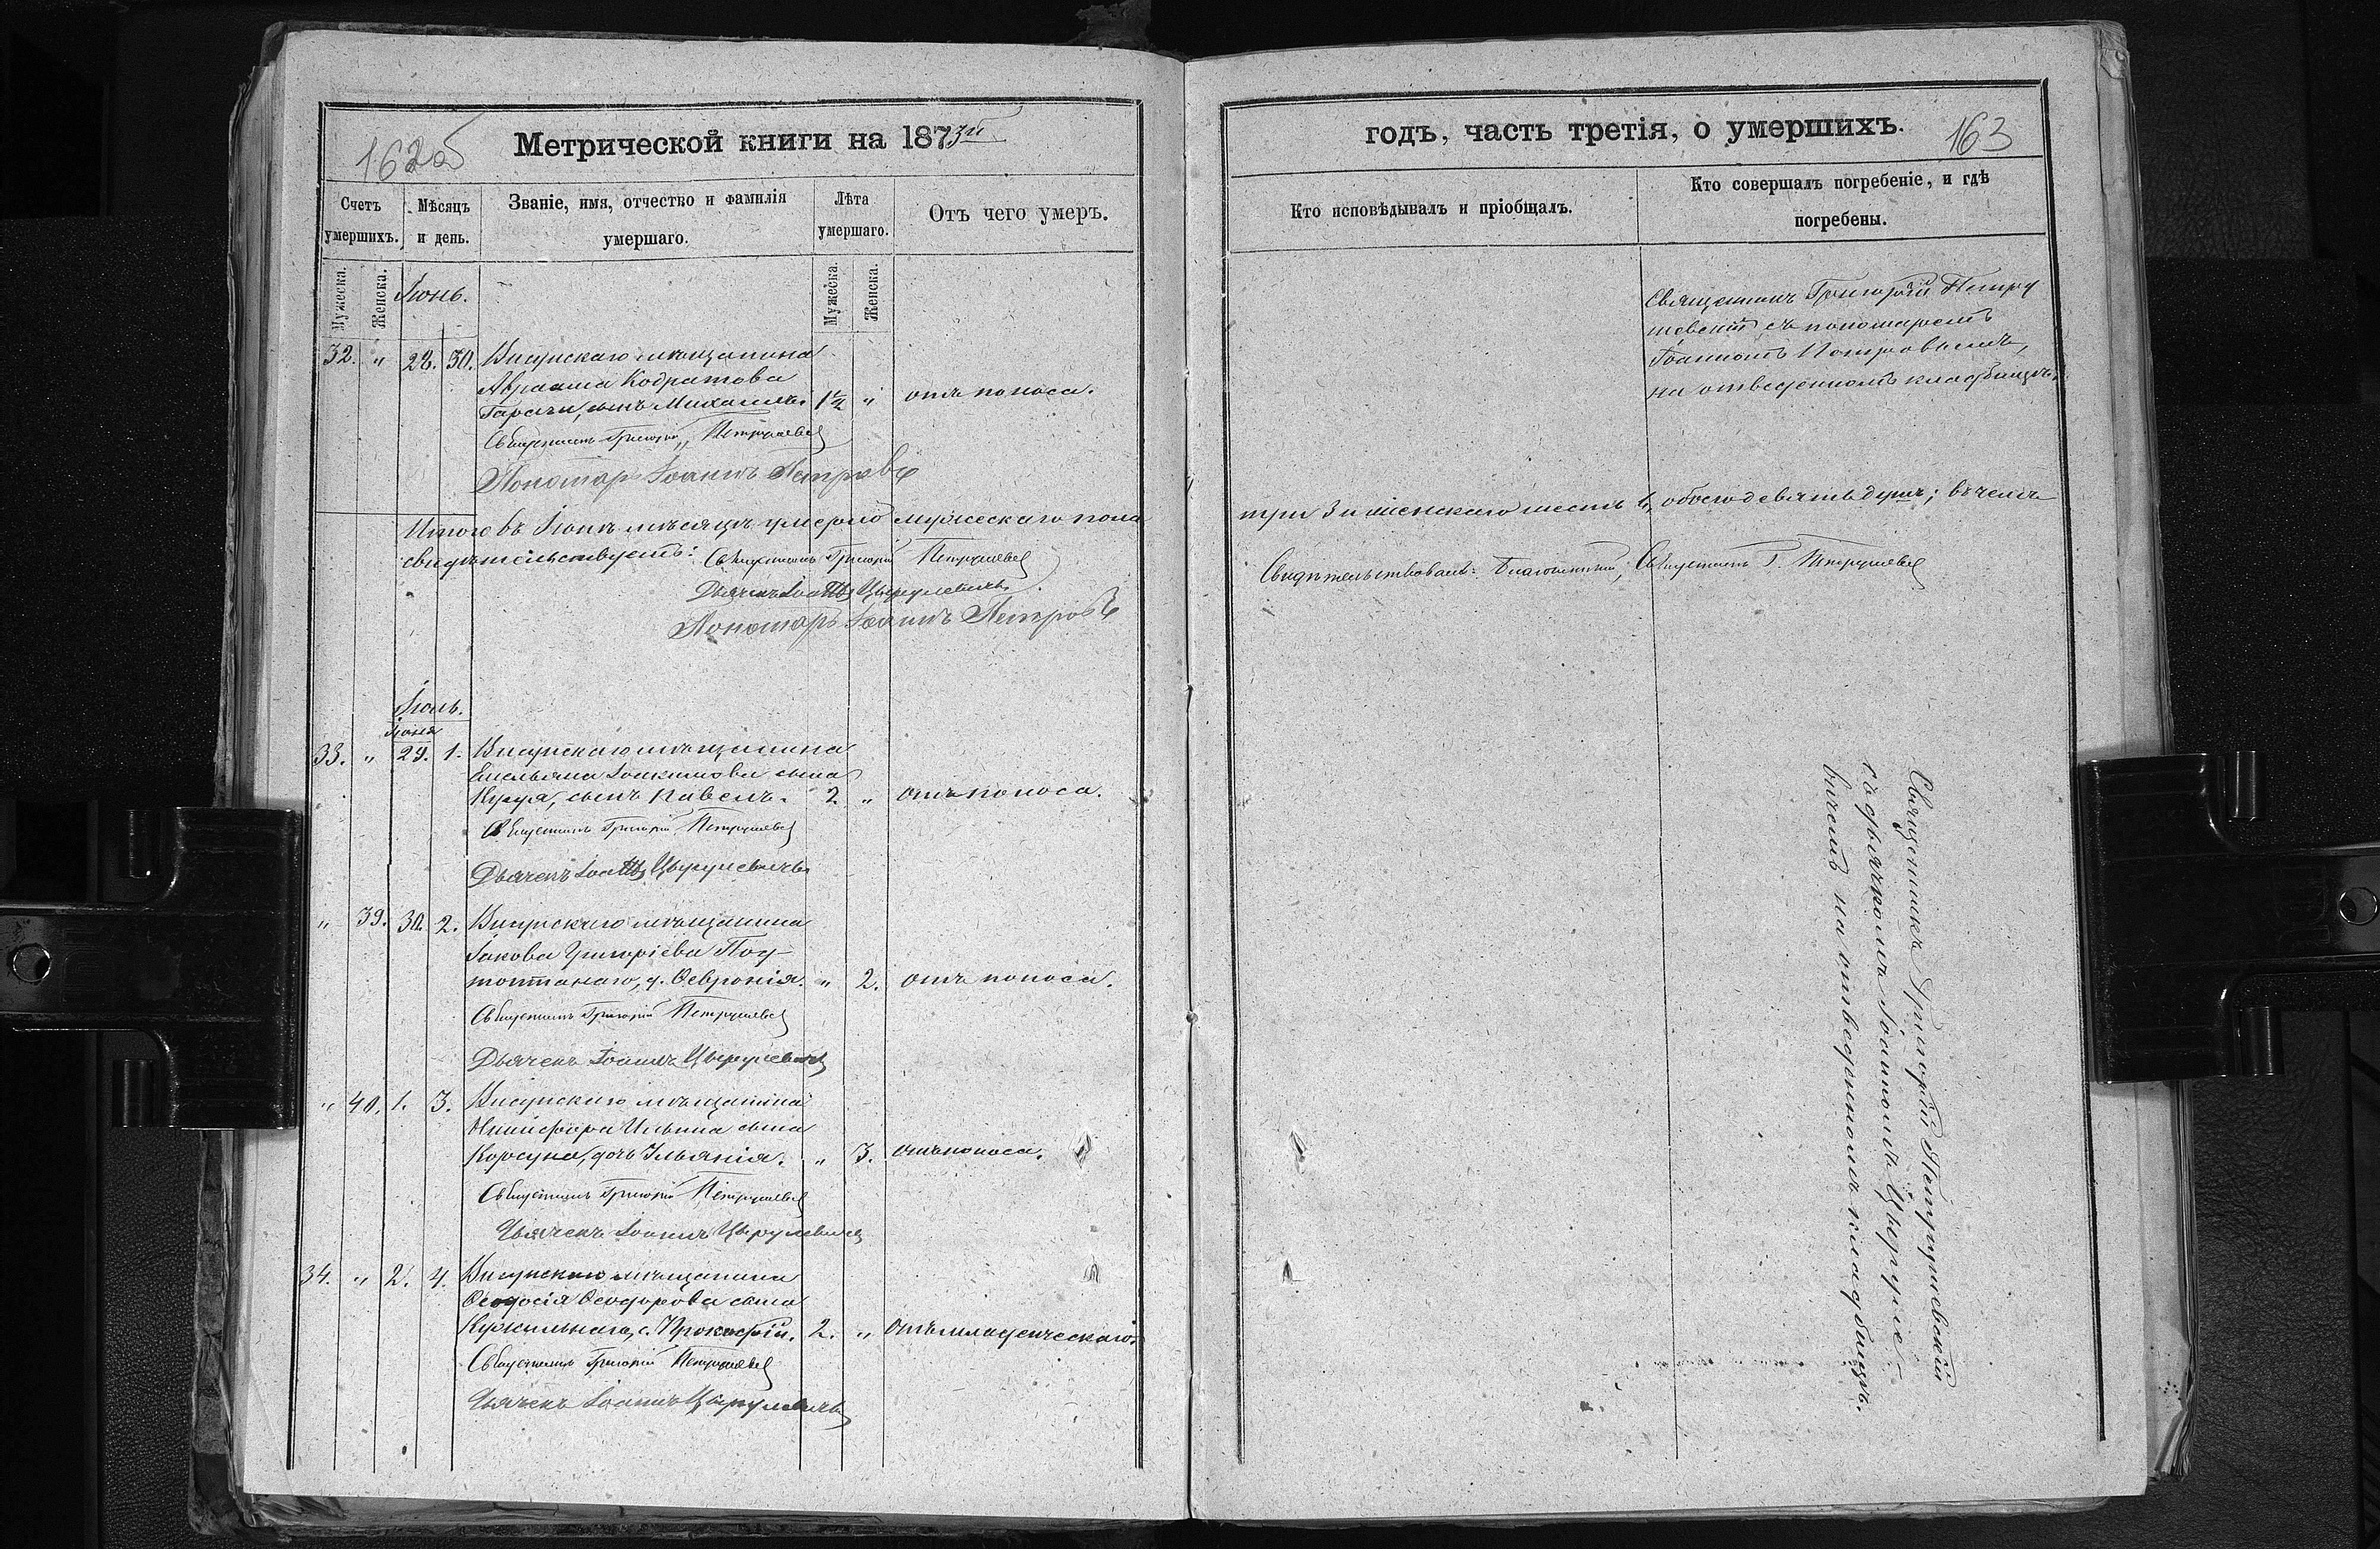 162об
Метрической книги на 1873й
Счетъ умершихъ.
Мѣсяцъ и день.
Званіе, имя, отчество и фамилія умершаго.
Лѣта умершаго.
Отъ чего умеръ.
Мужеска.
Женска.
Мужеска.
Женска.
Іюнь.
32. " 28. 30. Висунскаго мѣщанина
Авраама Кодратова
сынъ Михаилъ. 1½ " отъ поноса.
Священникъ Григорій Петрушевскі
Пономарь Іоаннъ Петровъ
Итого въ Іюнѣ мѣсяцѣ умерло мужескаго пола
свидѣтельствуетъ: Священникъ Григорій Петрушевскі
Дьячекъ Іоаннъ Цырулевичъ
Пономарь Іоаннъ Петровъ
Іюль.
Іюня
33. " 29. 1. Висунскаго мѣщанина
Емельяна Іоакимова сына
сынъ Павелъ. 2. " отъ поноса.
Священникъ Григорій Петрушевскі
Дьячекъ Іоаннъ Цырулевичъ
" 39. 30. 2. Висунскаго мѣщанина
Іакова Григоріева Под-
топтанаго, д. Ѳевронія. " 2. отъ поноса.
Священникъ Григорій Петрушевскі
Дьячекъ Іоаннъ Цырулевичъ
" 40. 1. 3. Висунскаго мѣщанина
Никифора Ильина сына
Корсуна, дочь Ульянія. " 3. отъ поноса.
Священникъ Григорій Петрушевскі
Дьячекъ Іоаннъ Цырулевичъ
34. " 2. 4. Висунскаго мѣщанина
Ѳеодосія Ѳеодорова сына
с. Прокофій. 2. " Отъ младенческаго.
Священникъ Григорій Петрушевскі
Дьячекъ Іоаннъ Цырулевичъ
годъ, часть третія, о умершихъ.
163
Кто исповѣдывалъ и пріобщалъ.
Кто совершалъ погребеніе, и гдѣ
погребены.
Священникъ Григорій Петру
шевскій съ пономаремъ
Іоанномъ Петровымъ,
на отведенномъ кладбищѣ.
три 3 и женскаго шесть 6, обоего девять душъ; въ чемъ
Свидѣтельствовалъ: Благочинный, Священникъ Г. Петрушевскі
Священникъ Григорій Петрушевскій
съ дьячкомъ Іоанномъ Цыруле-
вичемъ на отведенномъ кладбищѣ.